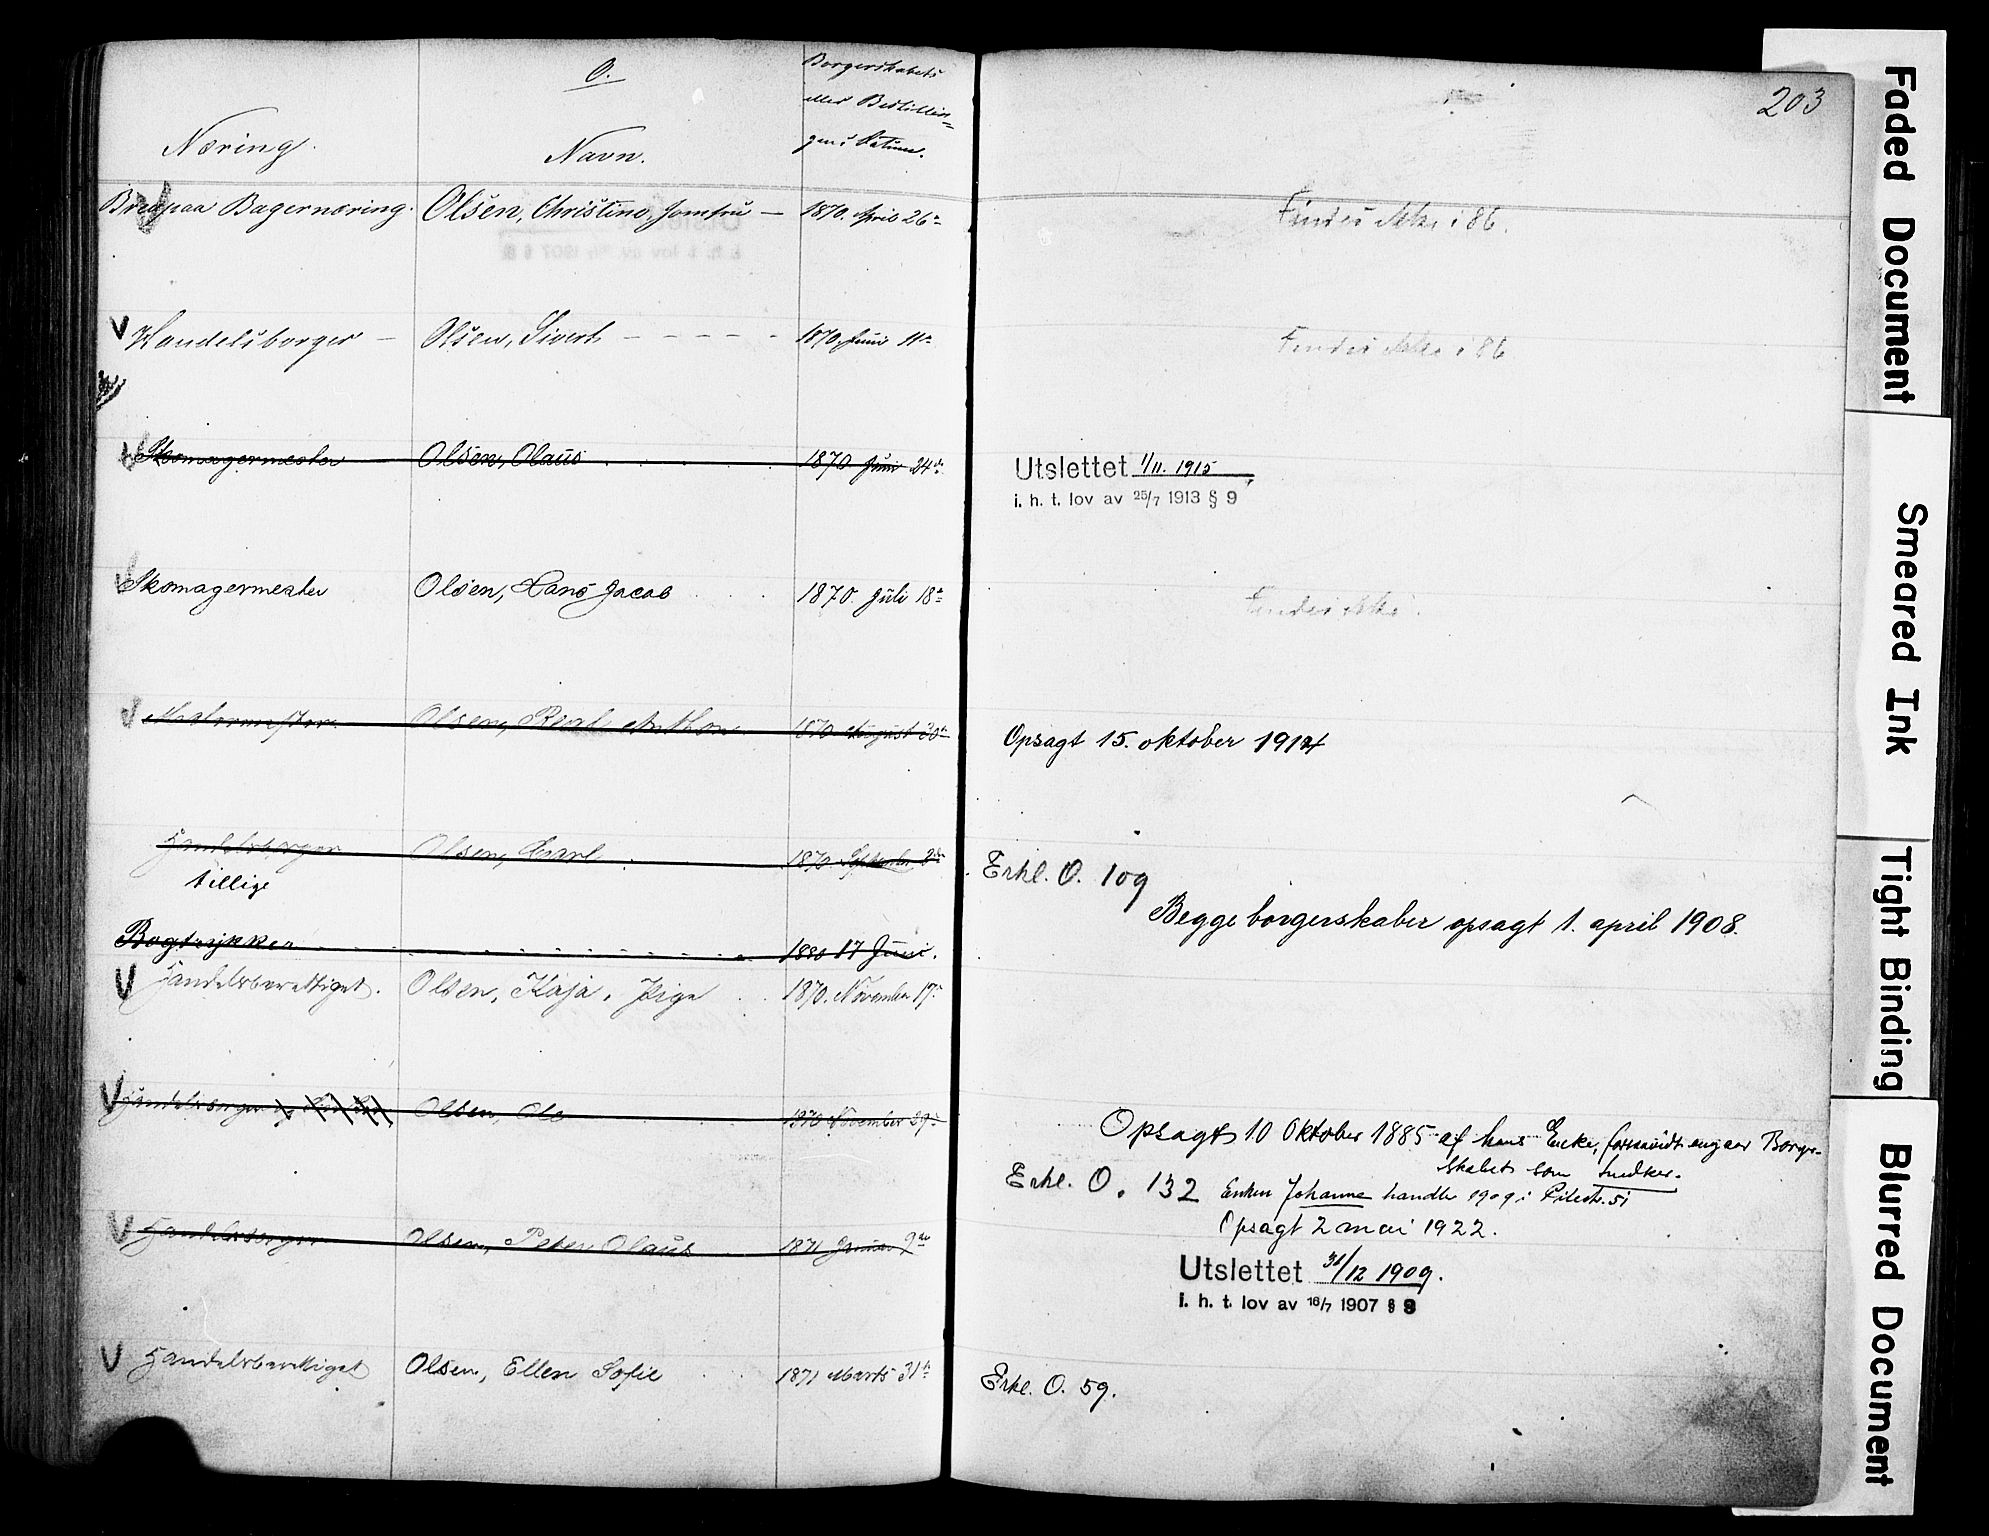 O.
203
Næring.
Navn.
Borgerskabets
eller Bestillin=
gens Datum.
Bagernæring. Olsen, Christine, Jomfru — 1870. April 26de
Findes ikke i 86.
V Handelsborger — Olsen, Sivert - - - - - 1870. Juni 11te
Findes ikke i 86
V Skomagermester Olsen, Olaus 1870 Juni 24de
Utslettet 1/11. 1915
i. h. t. lov av 25/7 1913 § 9
V Skomagermester Olsen, Hans Jacob 1870. Juli 18de
Findes ikke.
V Olsen, Anthon 1870 August 30te
Opsagt 15. oktober 1914
Handelsborger Olsen, Carl 1870 September 2den
tillige
Erkl. O. 109
Begge borgerskaber opsagt 1. april 1908.
Bogtrykker 1880 17 Juni.
V Handelsberettiget. Olsen, Kaja, Pige 1870. November 17de
V Handelsborger og Olsen, Ole 1870 November 29de
Opsagt 10 Oktober 1885 af hans Enke, forsaavidt angaar Borger-
skabet som Snedker.
Erkl. O. 132 Enken Johanne handler 1909 i Pilestr. 51
Opsagt 2 mai 1922.
V Handelsborger Olsen, Peter Olaus 1871 Januar 9de
Utslettet 31/12 1909.
i. h. t. lov av 16/7 1907 §
V Handelsberettiget Olsen, Ellen Sofie 1871 Marts 31te
Erkl. O. 59.
Faded Document
Smeared Ink
Tight Binding
Blurred Document